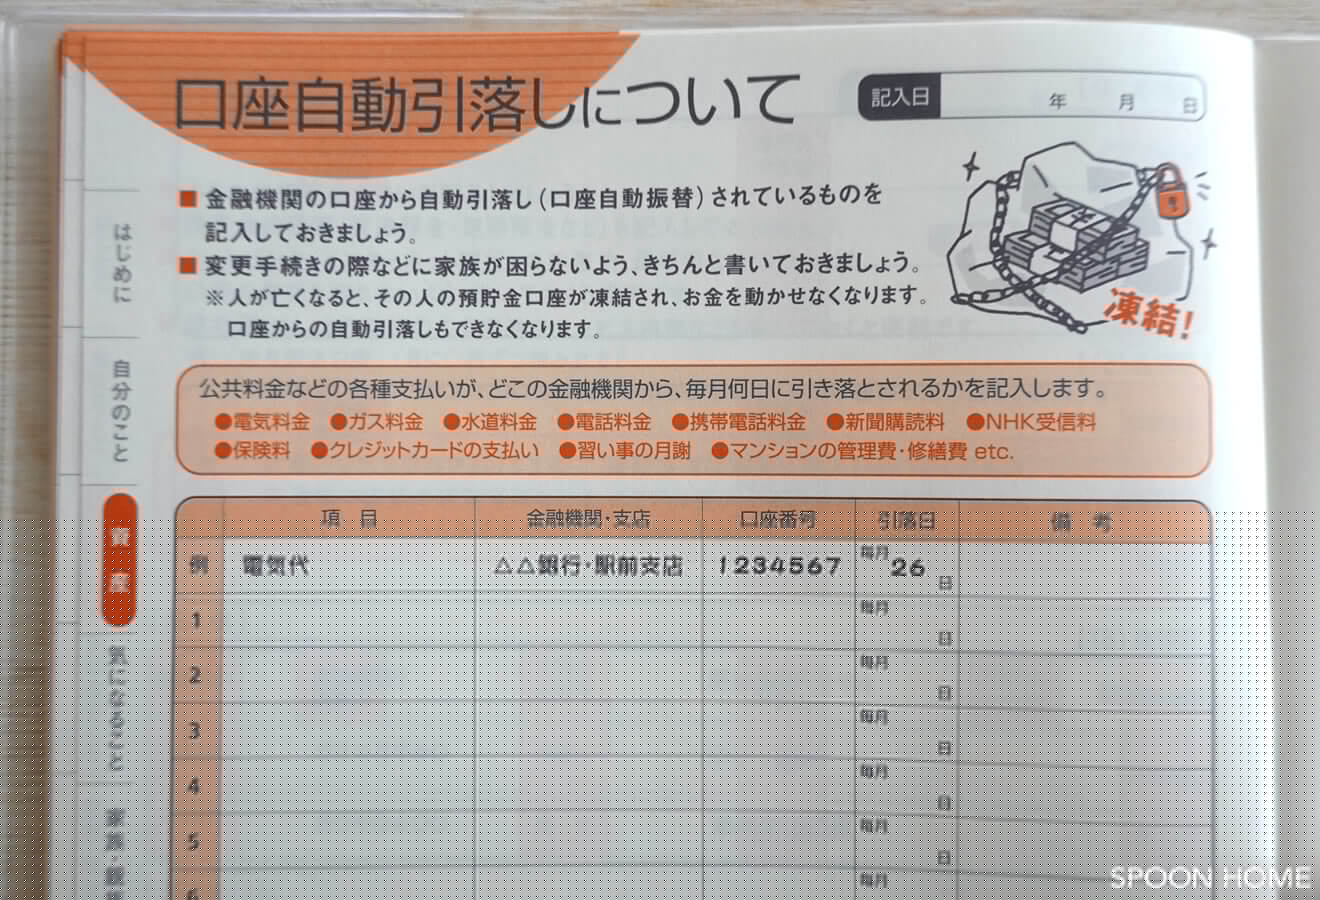 口座自動引落しについて
記入日 年 月 日
■ 金融機関の口座から自動引落し(口座自動振替)されているものを
記入しておきましょう。
■ 変更手続きの際などに家族が困らないよう、きちんと書いておきましょう。
※人が亡くなると、その人の預貯金口座が凍結され、お金を動かせなくなります。
口座からの自動引落しもできなくなります。
凍結!
公共料金などの各種支払いが、どこの金融機関から、毎月何日に引き落とされるかを記入します。
●電気料金 ●ガス料金 ●水道料金 ●電話料金 ●携帯電話料金 ●新聞購読料 ●NHK受信料
●保険料 ●クレジットカードの支払い ●習い事の月謝 ●マンションの管理費・修繕費 etc.
項 目 金融機関・支店 口座番号 引落日 備 考
例 電気代 △△銀行・駅前支店 1234567 毎月26日
1 毎月 日
2 毎月 日
3 毎月 日
4 毎月 日
5 毎月 日
6 毎月
はじめに
自分のこと
資産
気になること
SPOON HOME